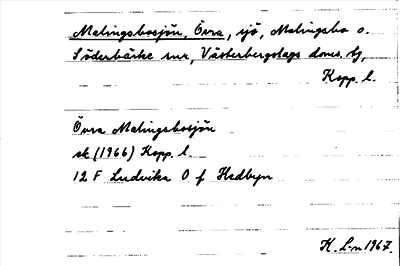 Malingsbosjön, Övra, sjö, Malingsbo o.
Söderbärke snr, Västerbergslags doms. tg,
Kopp. l.
Övra Malingsbosjön
ek (1966) Kopp. l.
12 F Ludvika O f Hedbyn
K. L-n 1967.